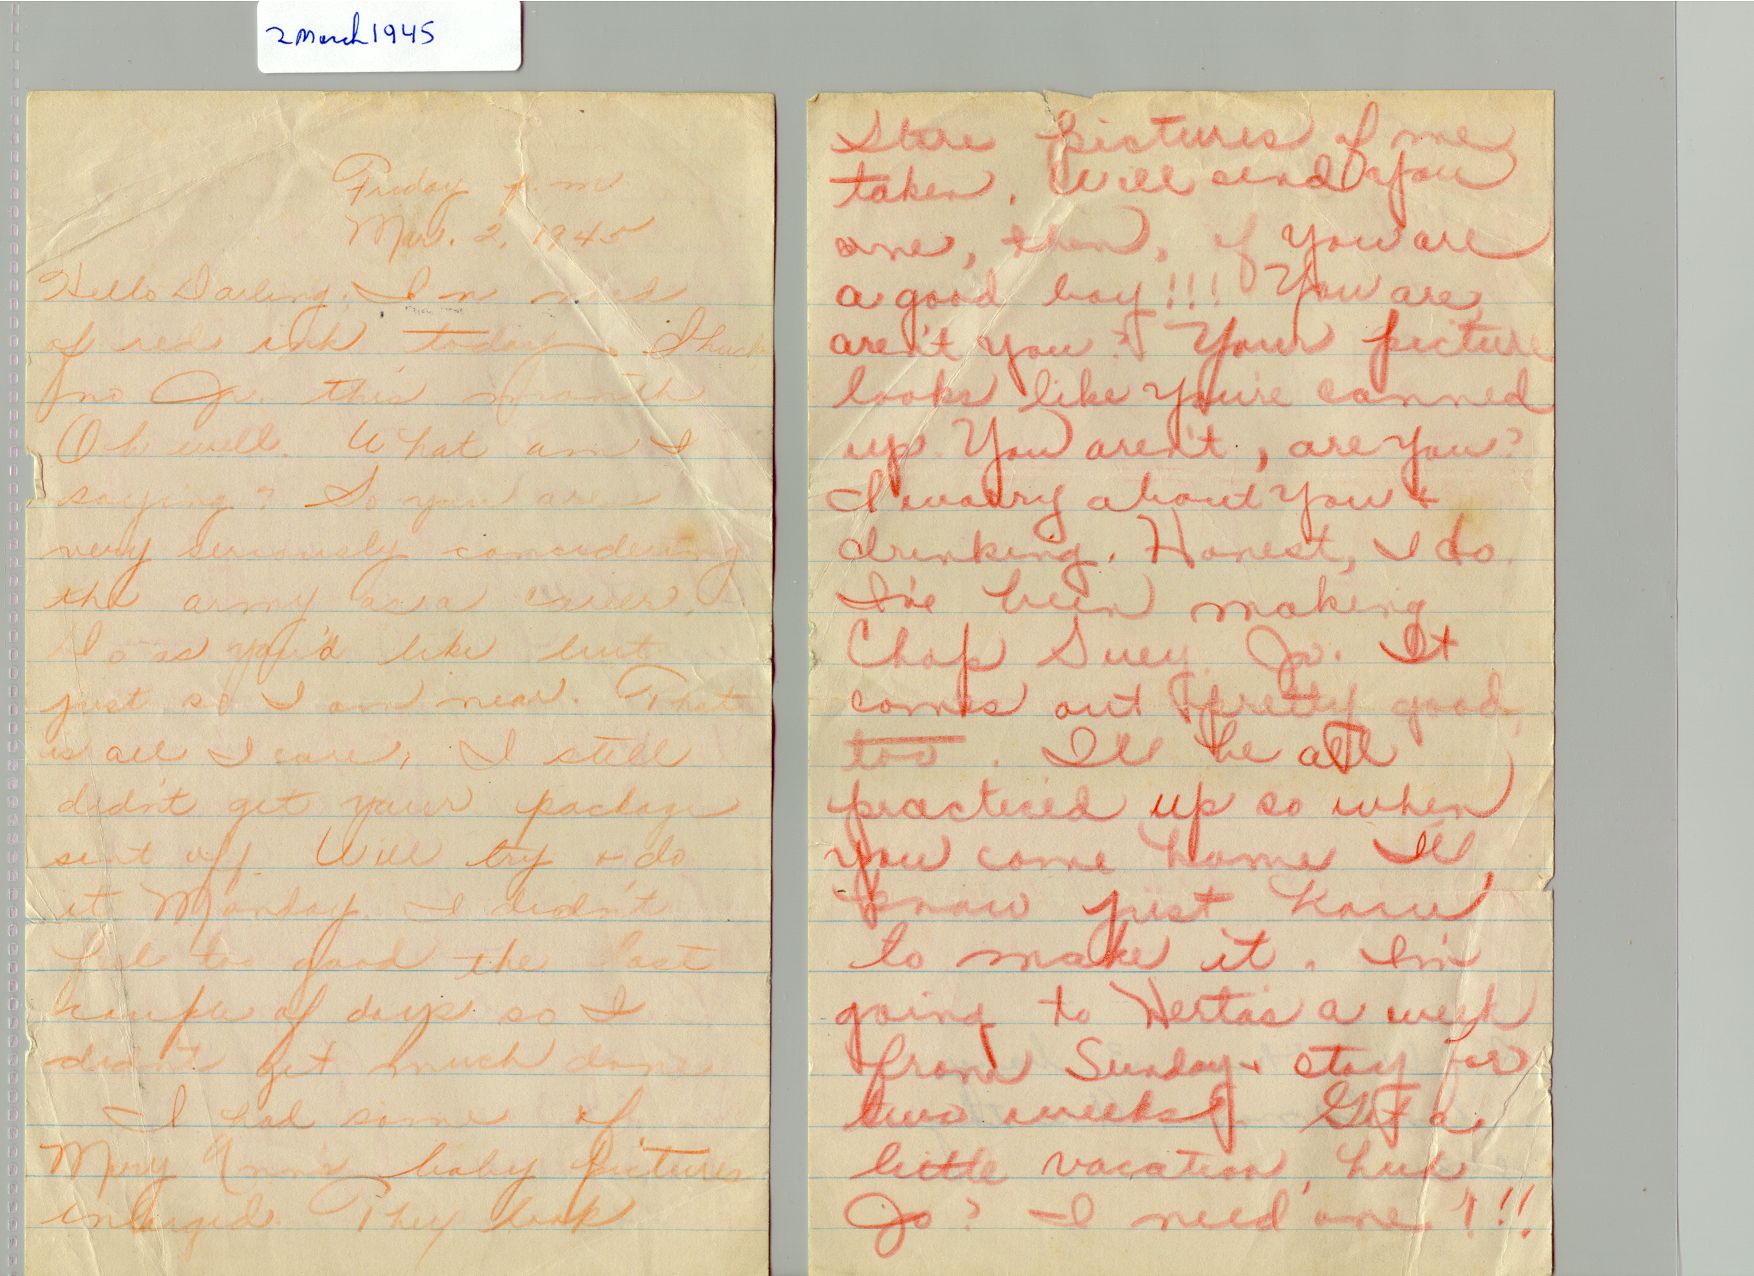 2 March 1945
Friday p.m
Mar. 2, 1945
Hello Darling, I'm
of red ink today. I
no Jr. this month
Oh well. What am I
saying? So you are
very seriously concidering
the army as a career.
Do as you'd like but
just so I am near. That
is all I care, I still
didn't get your package
sent off Will try & do
it Monday. I didn't
feel too good the last
couple of days so I
didn't get much done
I had some of
Mary Ann's baby pictures
enlarged. They look
Store pictures of me
taken. Will send you
one, then, if you are
a good boy!!! You are,
aren't you? Your picture
looks like you're canned
up. You aren't, are you?
I worry about you &
drinking. Honest, I do.
I've been making
Chop Suey, Jo. It
comes out pretty good,
too. I'll be all
practiced up so when
you come home I'll
know just how
to make it. I'm
going to Herta's a week
from Sunday & stay for
two weeks. Get a
little vacation, huh
Jo? I need one!!!